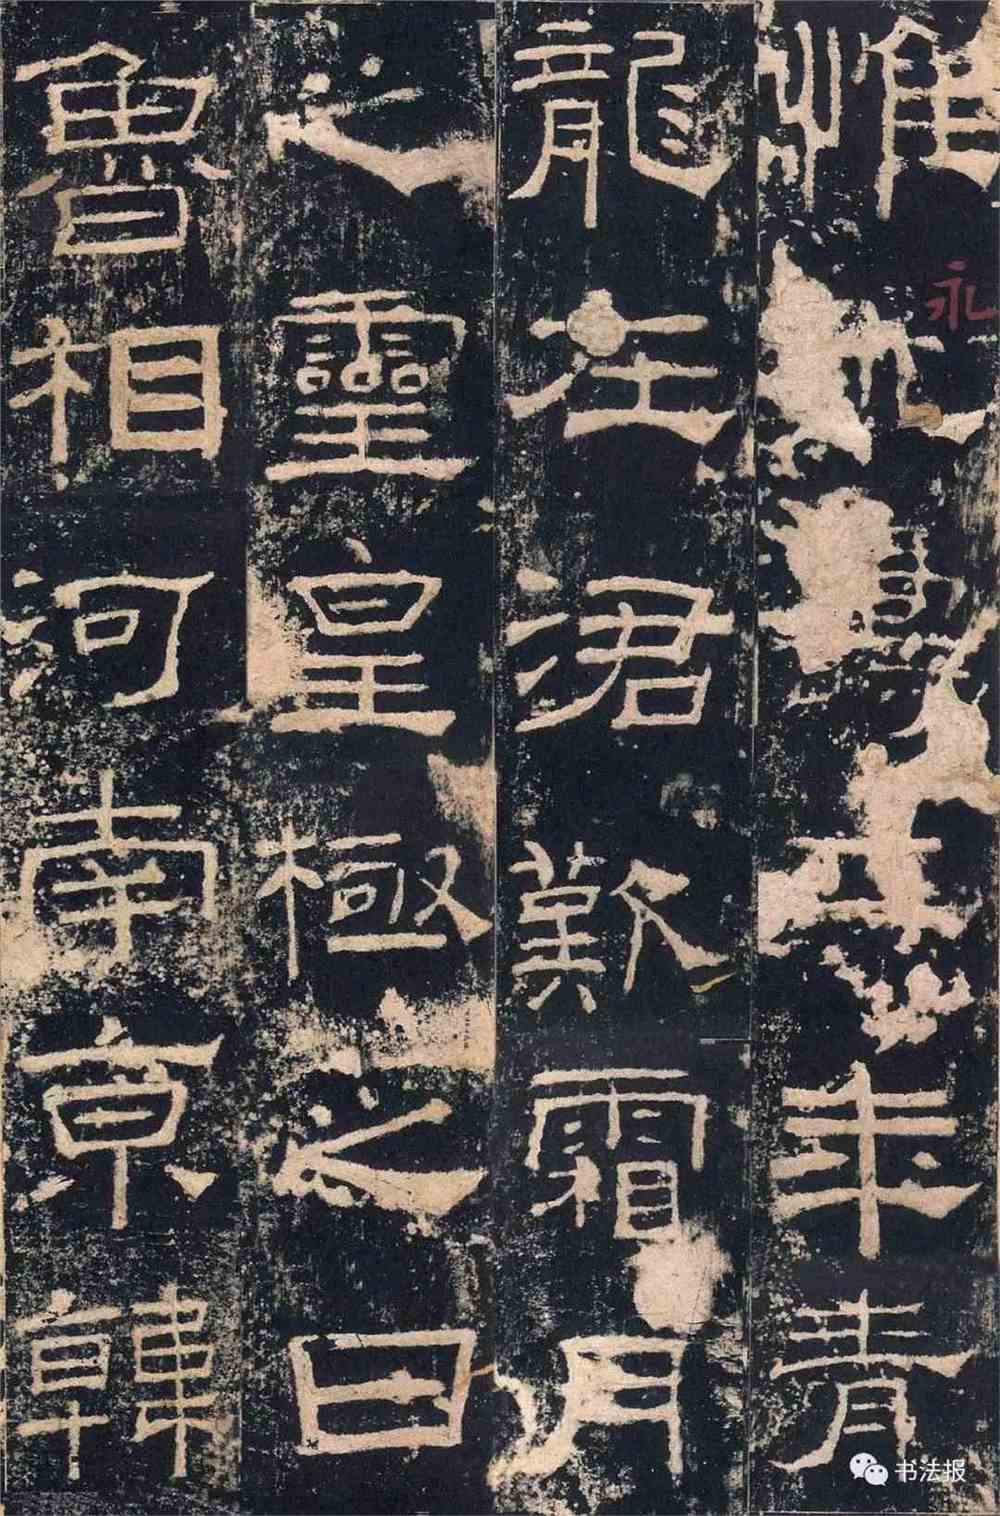 惟永壽二年青
龍在涒歎霜月
之靈皇極之日
魯相河南京韓
永
书法报